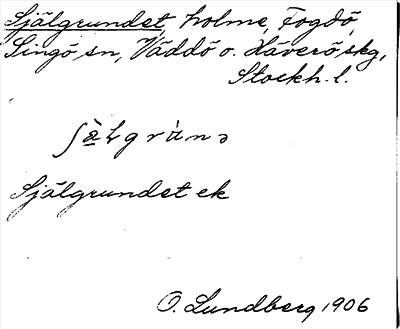 Själgrundet, holme, Fogdö,
Singö sn, Väddö o. Häverö skg,
Stockh. l.
Själgrundet ek
O. Lundberg 1906